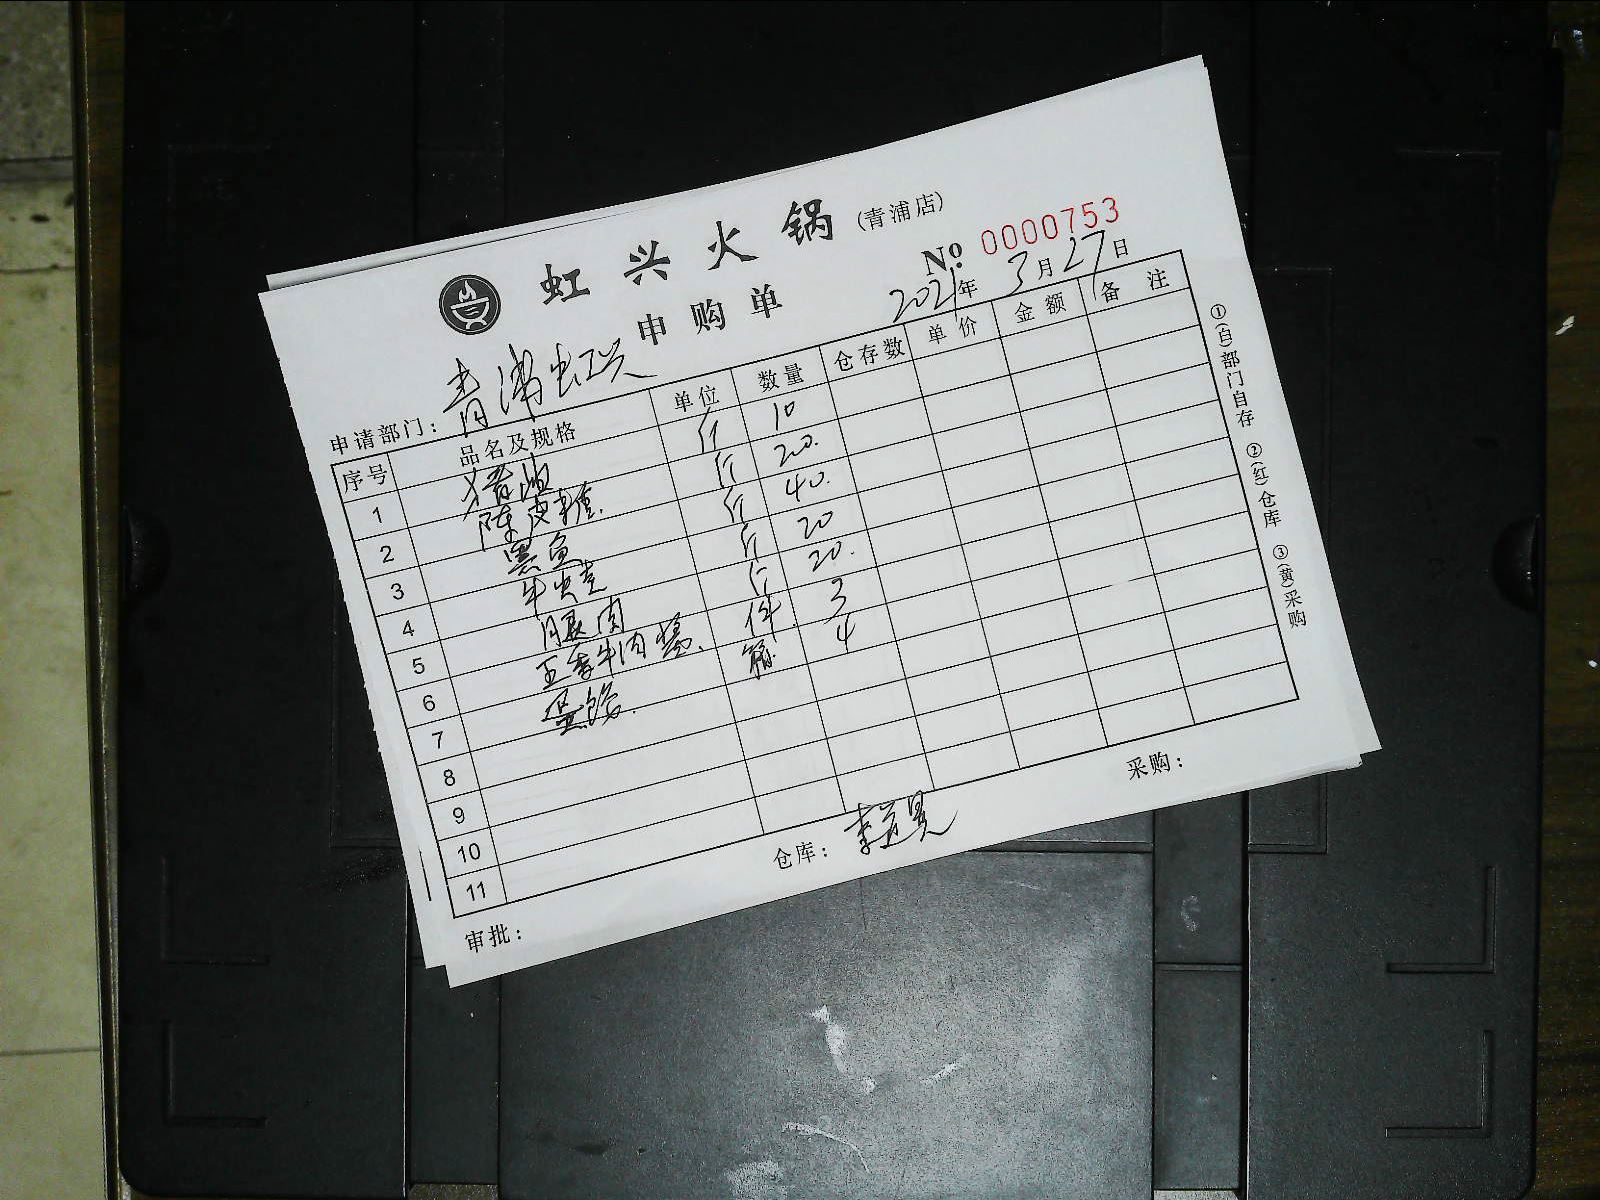 虹兴火锅(青浦店)
申购单
№ 0000753
2021年3月27日
申请部门：青浦虹兴
序号 品名及规格 单位 数量 仓存数 单价 金额 备注
1 猪油 斤 10
2 陈皮 斤 20.
3 黑鱼 斤 40.
4 牛 斤 20
5 眼肉 斤 20.
6 五香牛肉酱. 件 3
7 箱 4
8
9
10
11
审批： 仓库： 采购：
①(白)部门自存 ②(红)仓库 ③(黄)采购